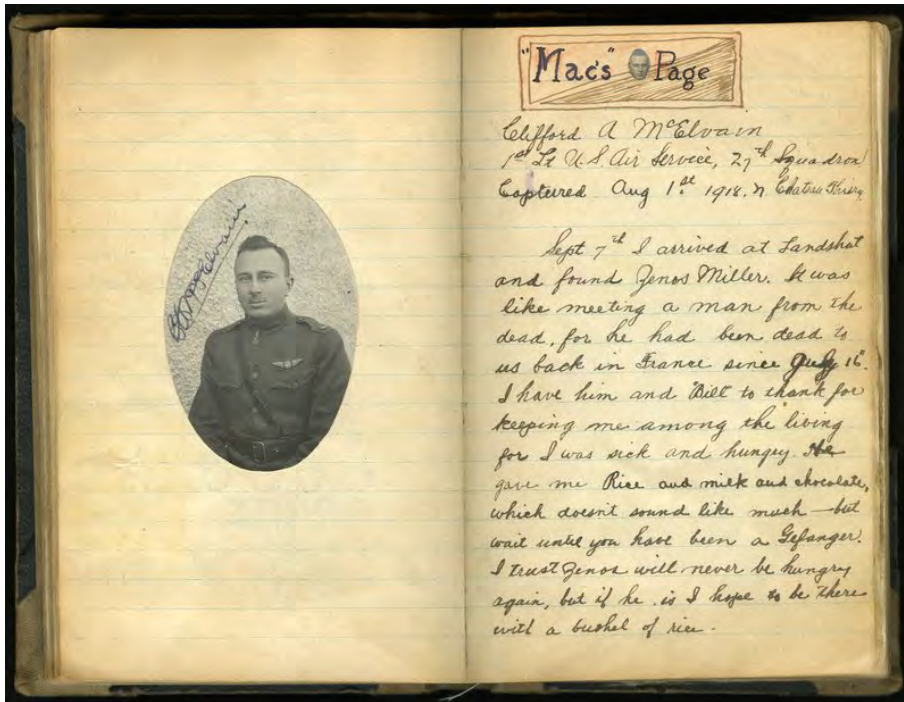 C A McElvain.
"Mac's" Page
Clifford A McElvain
1st Lt U S Air Service, 27th Squadron
Captured Aug 1st 1918. N Chateau Thierry
Sept 7th I arrived at Landshut
and found Zenos Miller. It was
like meeting a man from the
dead, for he had been dead to
us back in France since July 16".
I have him and "Bill" to thank for
keeping me among the living
for I was sick and hungry. He
gave me Rice and milk and chocolate,
which doesn't sound like much – but
wait until you have been a Gefanger.
I trust Zenos will never be hungry
again, but if he is I hope to be there
with a bushel of rice.